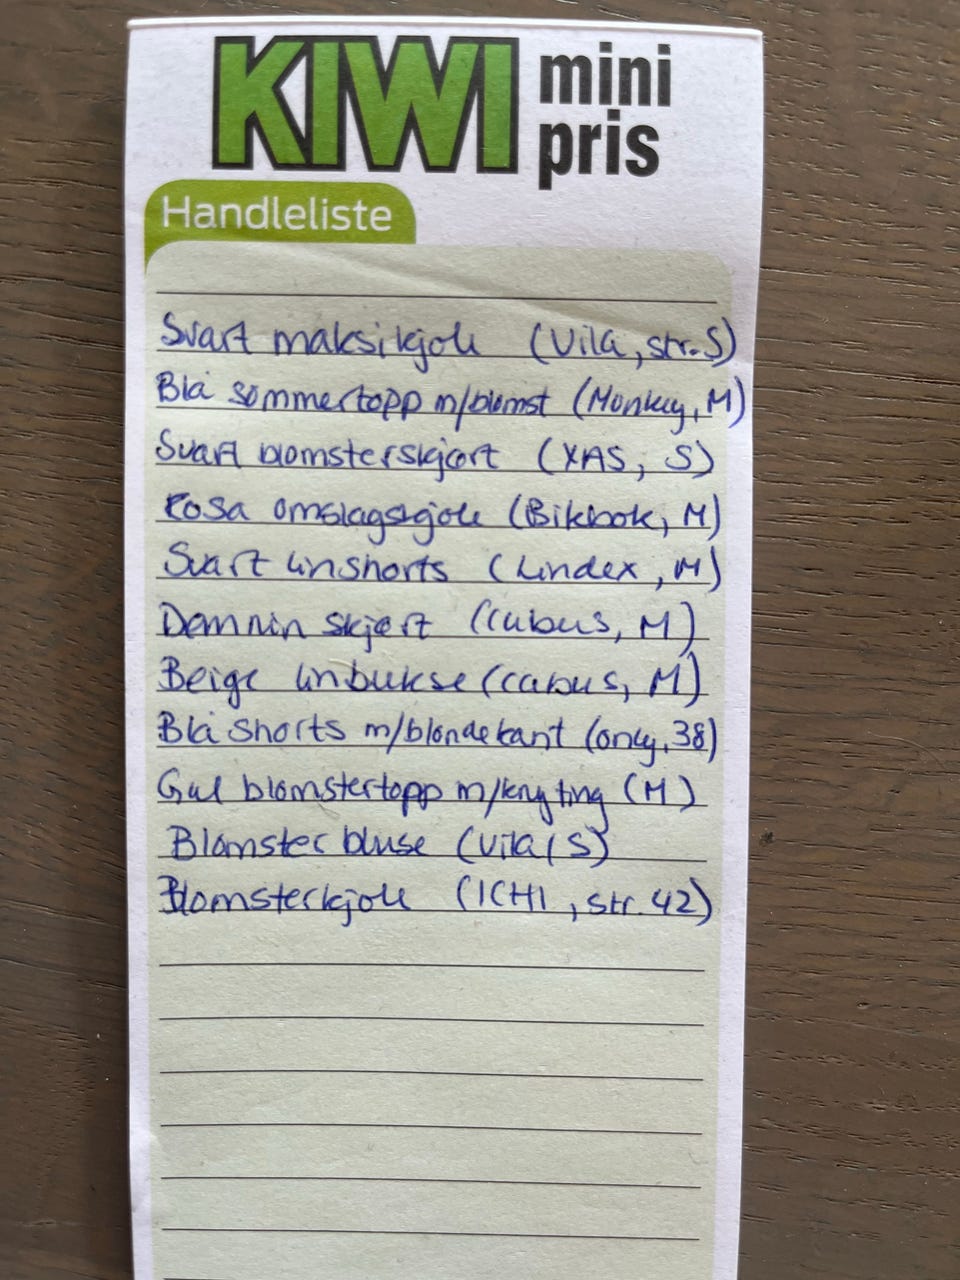 KIWI mini pris
Handleliste
Svart maksikjole (Vila, str. S)
Blå sommertopp m/blomst (Monkey, M)
Svart blomsterskjørt (XAS, S)
Rosa omslagskjole (Bikbok, M)
Svart linshorts (Lindex, M)
Demnin skjørt (Cubus, M)
Beige linbukse (Cubus, M)
Blå shorts m/blondekant (only, 38)
Gul blomstertopp m/knyting (M)
Blomster bluse (Vila, S)
Blomsterkjole (ICHI, str. 42)